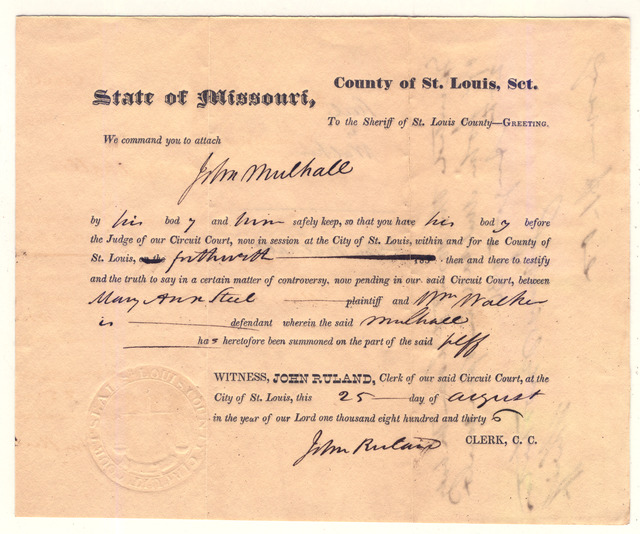 County of St. Louis, Sct.
State of Missouri,
To the Sheriff of St. Louis County—GREETING.
We command you to attach
John Mulhall
by his body and him safely keep, so that you have his body before
the Judge of our Circuit Court, now in session at the City of St. Louis, within and for the County of
St. Louis, on the forthwith 183 then and there to testify
and the truth to say in a certain matter of controversy, now pending in our said Circuit Court, between
Mary Ann Steel plaintiff and Wm Walker
is defendant wherein the said Mulhall
has heretofore been summoned on the part of the said plff
WITNESS, JOHN RULAND, Clerk of our said Circuit Court, at the
City of St. Louis, this 25 day of august
in the year of our Lord one thousand eight hundred and thirty 5
John Ruland CLERK, C. C.